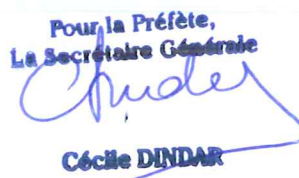 Pour la Préfète,
La Secrétaire Générale
Cécile DINDAR